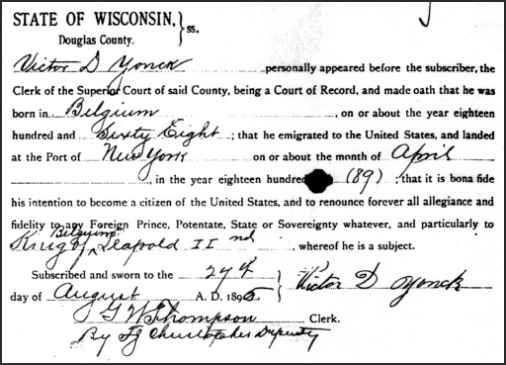 STATE OF WISCONSIN, } ss.
Douglas County.
Victor D Yonck personally appeared before the subscriber, the
Clerk of the Superior Court of said County, being a Court of Record, and made oath that he was
born in Belgium, on or about the year eighteen
hundred and Sixty Eight; that he emigrated to the United States, and landed
at the Port of New York on or about the month of April
, in the year eighteen hundred (89); that it is bona fide
his intention to become a citizen of the United States, and to renounce forever all allegiance and
fidelity to any Foreign Prince, Potentate, State or Sovereignty whatever, and particularly to
Belgium
King of ^ Leapold II nd, whereof he is a subject.
Subscribed and sworn to the 29th } Victor D Yonck
day of August A. D. 1895
G W Thompson Clerk.
By Deputy